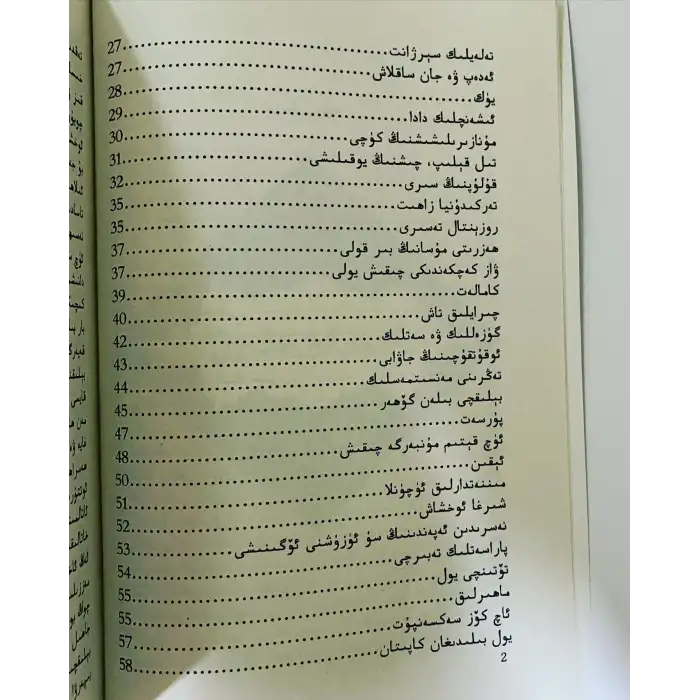 تەلەيلىك سېرژانت ... 27
ئەدەپ ۋە جان ساقلاش ... 27
يۈك ... 28
ئىشەنچلىك دادا ... 29
مۇنازىرىلىشىشنىڭ كۈچى ... 30
تىل قېلىپ، چىشنىڭ يوقىلىشى ... 31
قۇلۇپنىڭ سىرى ... 32
تەركىدۇنيا زاھىت ... 35
روزېنتال تەسىرى ... 35
ھەزرىتى مۇسانىڭ بىر قولى ... 37
ۋاز كەچكەندىكى چىقىش يولى ... 37
كامالەت ... 39
چىرايلىق تاش ... 40
گۈزەللىك ۋە سەتلىك ... 42
ئوقۇتقۇچىنىڭ جاۋابى ... 43
تەڭرىنى مەنسىتمەسلىك ... 44
بېلىقچى بىلەن گۆھەر ... 45
پۇرسەت ... 47
ئۈچ قېتىم مۇنبەرگە چىقىش ... 48
ئېقىن ... 50
مىننەتدارلىق ئۈچۈنلا ... 51
شىرغا ئوخشاش ... 52
نەسرىدىن ئەپەندىنىڭ سۇ ئۈزۈشنى ئۆگىنىشى ... 53
پاراسەتلىك تەبىرچى ... 54
تۆتىنچى يول ... 55
ماھىرلىق ... 55
ئاچ كۆز سەكسەنپۇت ... 57
يول بىلىدىغان كاپىتان ... 58
2